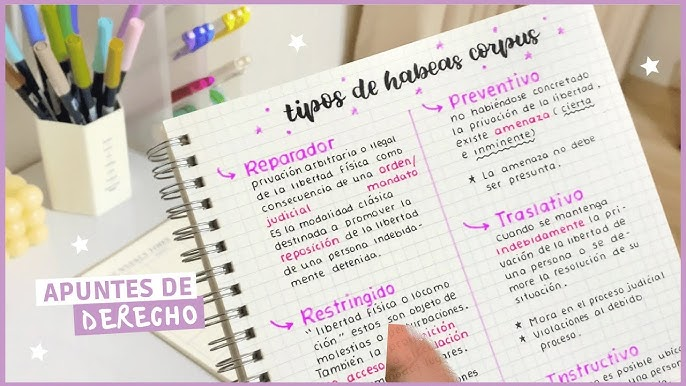 tipos de habeas corpus
Reparador
privación arbitraria o ilegal
de la libertad física como
consecuencia de una orden/
judicial mandato
Es la modalidad clásica
destinada a promover la
reposición de la libertad
de una persona indebida-
mente detenida.
Restringido
"libertad física o locomo
ción" estos son objeto de
molestias o
También la
acceso
Preventivo
no habiéndose concretado
la privación de la libertad,
existe amenaza (cierta
e inminente)
★ La amenaza no debe
ser presunta.
Traslativo
Cuando se mantenga
indebidamente la pri-
vación de la libertad de
una persona o se de-
more la resolución de su
situación.
★ Mora en el proceso judicial
★ Violaciones al debido
proceso.
Instructivo
es posible
APUNTES DE
DERECHO